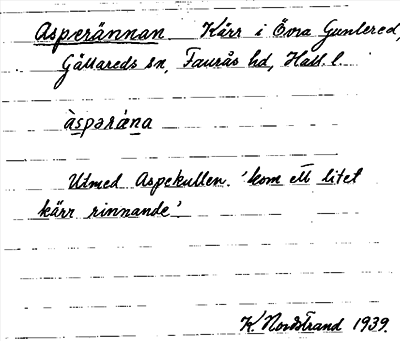 Asperännan Kärr i Övra Gunlered,
Gällareds sn, Faurås hd, Hall. l.
àspəräna
Utmed Aspekullen. 'kom ett litet
kärr rinnande'.
K. Nordstrand 1939.